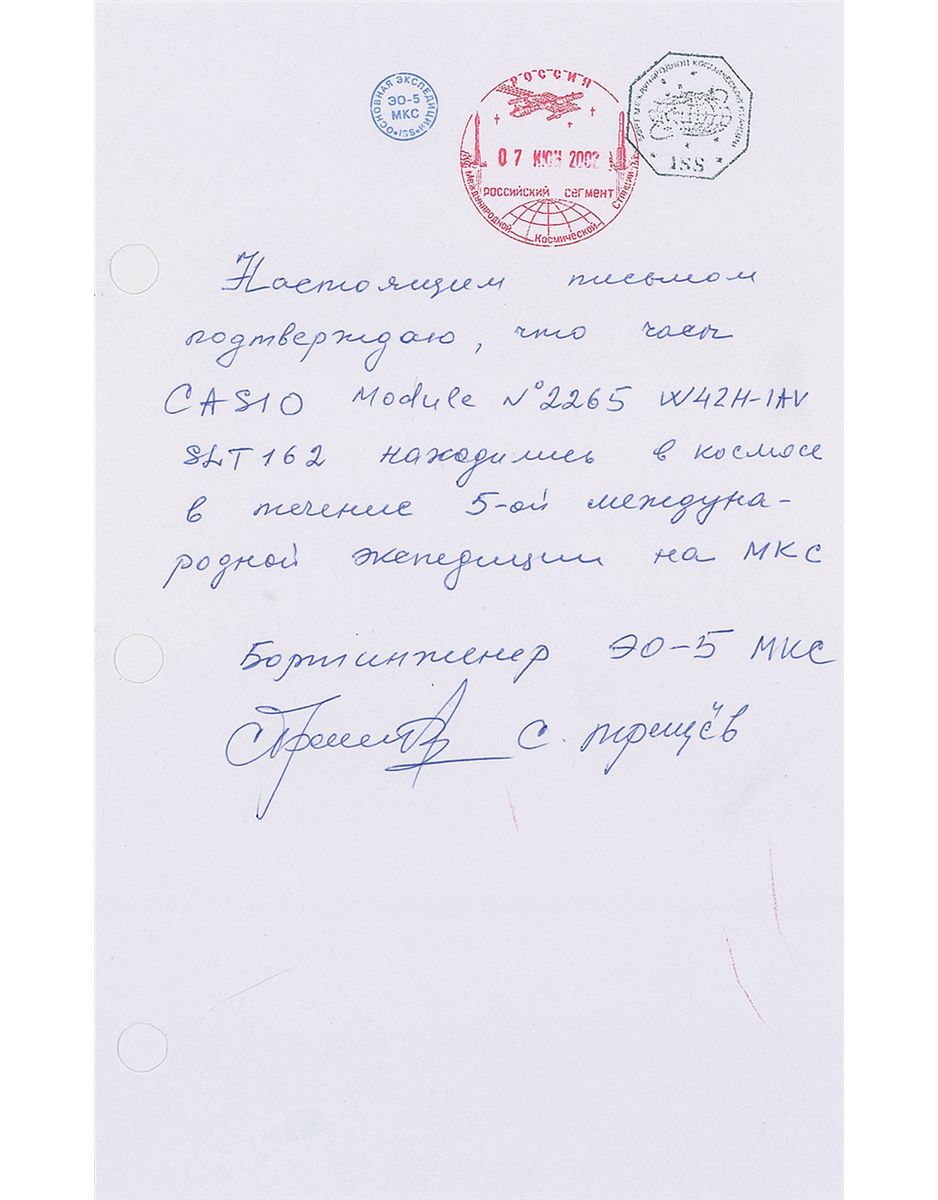 ОСНОВНАЯ ЭКСПЕДИЦИЯ • ISS •
ЭО-5
МКС
РОССИЯ
07 ИЮН 2002
РОССИЙСКИЙ СЕГМЕНТ
Международной Космической Станции
МЕЖДУНАРОДНОЙ КОСМИЧЕСКОЙ СТАНЦИИ
ISS
Настоящим письмом
подтверждаю, что часы
CASIO Module N°2265 W42H-1AV
SLT162 находились в космосе
в течение 5-ой междуна-
родной экспедиции на МКС
Бортинженер ЭО-5 МКС
С. Трещёв